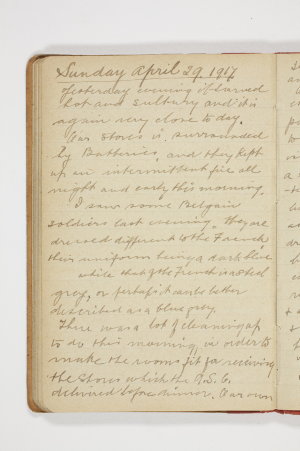 Sunday April 29. 1917
Yesterday evening it turned
hot and sultry and it is
again very close to day.
Our Stores is surrounded
by Batteries, and they kept
up an intermittent fire all
night and early this morning.
I saw some Belgain
soldiers last evening. They are
dressed different to the French
their uniform being a dark blue
while that of the French is a steel
grey, or perhaps it can be better
described as a blue grey.
There was a lot of cleaning up
to do this morning, in order to
make the rooms fit for receiving
the stores which the A.S.C.
delivered before dinner. Our own